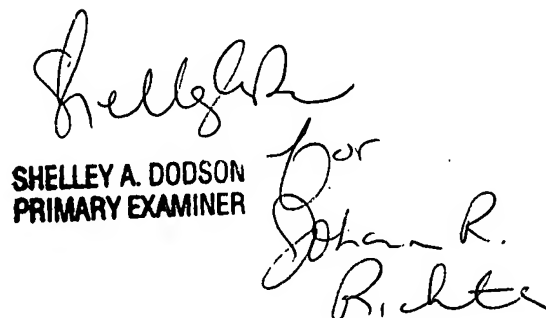 SHELLEY A. DODSON
PRIMARY EXAMINER
for
Johann R.
Richter